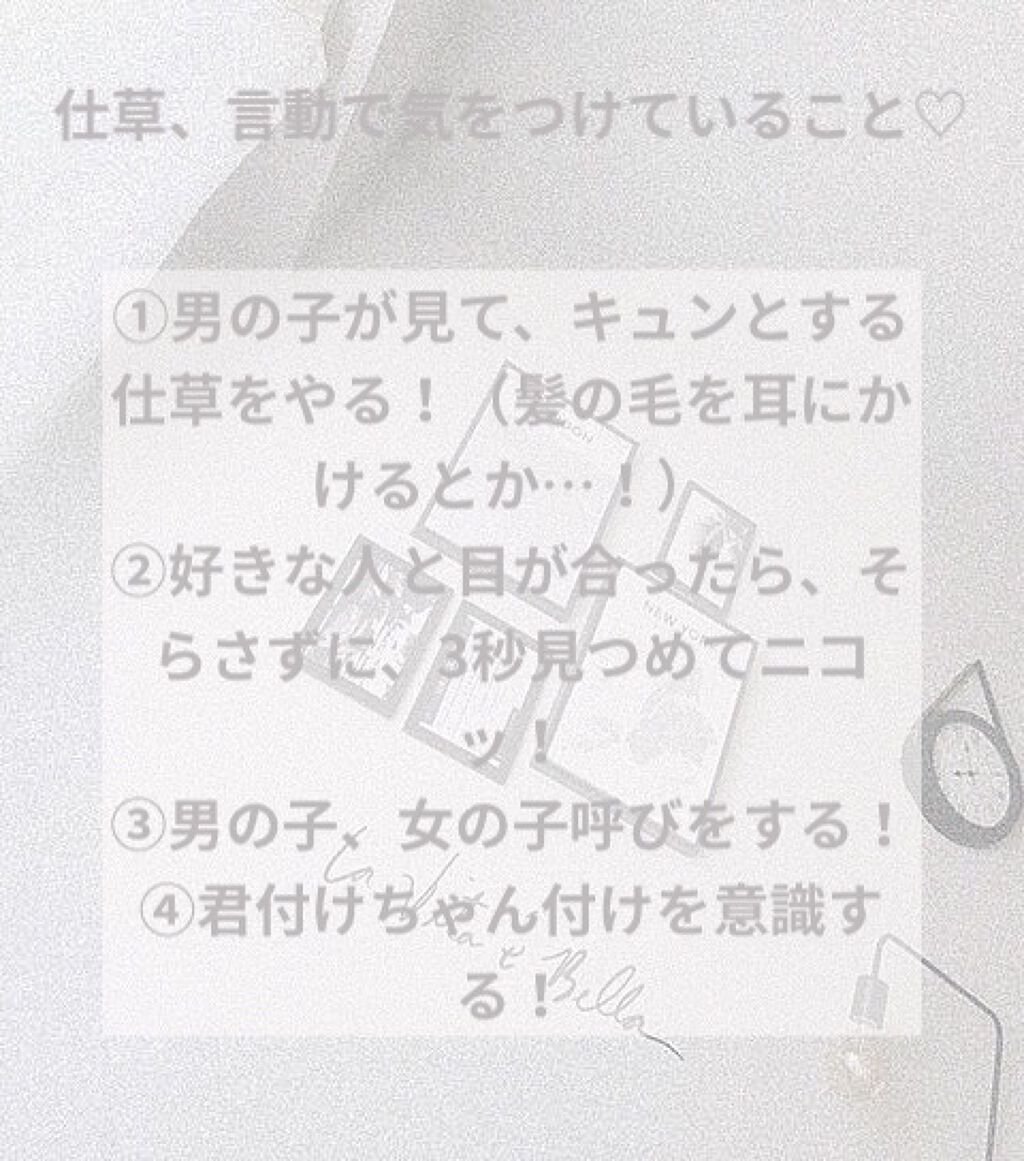 仕草、言動で気をつけていること♡
①男の子が見て、キュンとする
仕草をやる！（髪の毛を耳にか
けるとか…！）
②好きな人と目が合ったら、そ
らさずに、3秒見つめてニコ
ッ！
③男の子、女の子呼びをする！
④君付けちゃん付けを意識す
る！